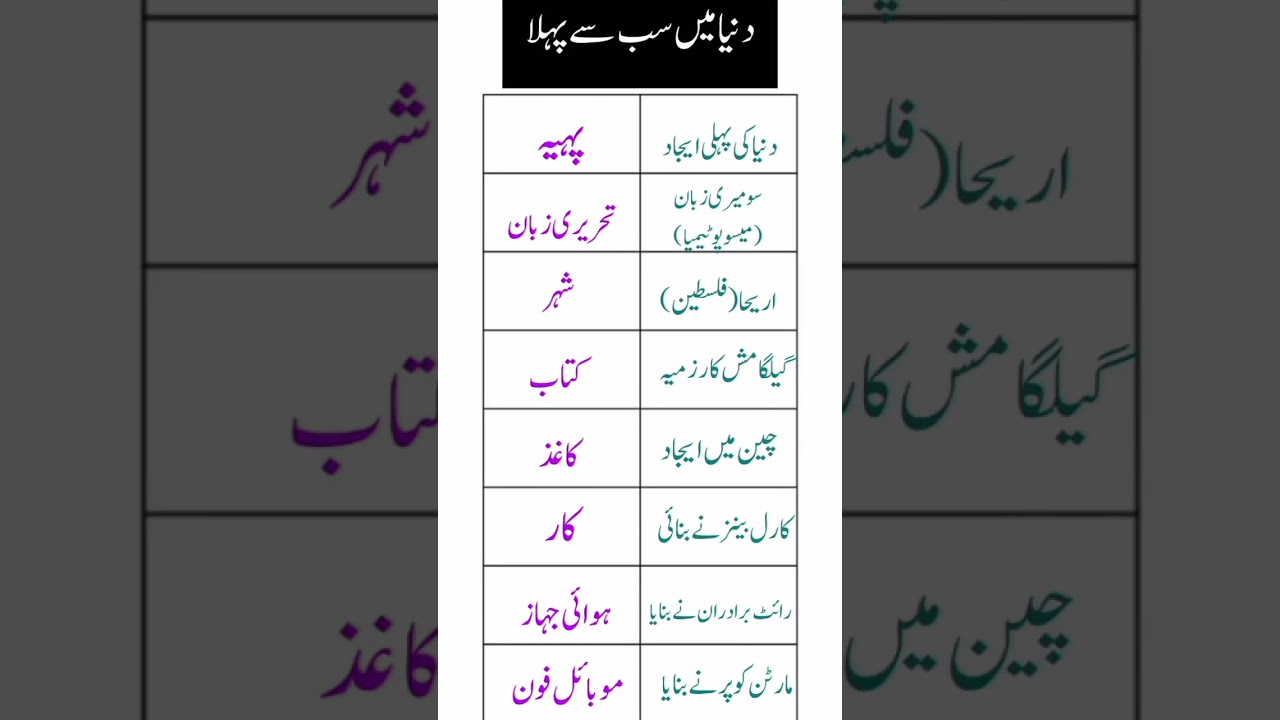 دنیا میں سب سے پہلا
دنیا کی پہلی ایجاد
پہیہ
سومیری زبان
(میسوپوٹیمیا)
تحریری زبان
اریحا (فلسطین)
شہر
گیلگامش کا رزمیہ
کتاب
چین میں ایجاد
کاغذ
کارل بینز نے بنائی
کار
رائٹ برادران نے بنایا
ہوائی جہاز
مارٹن کوپر نے بنایا
موبائل فون